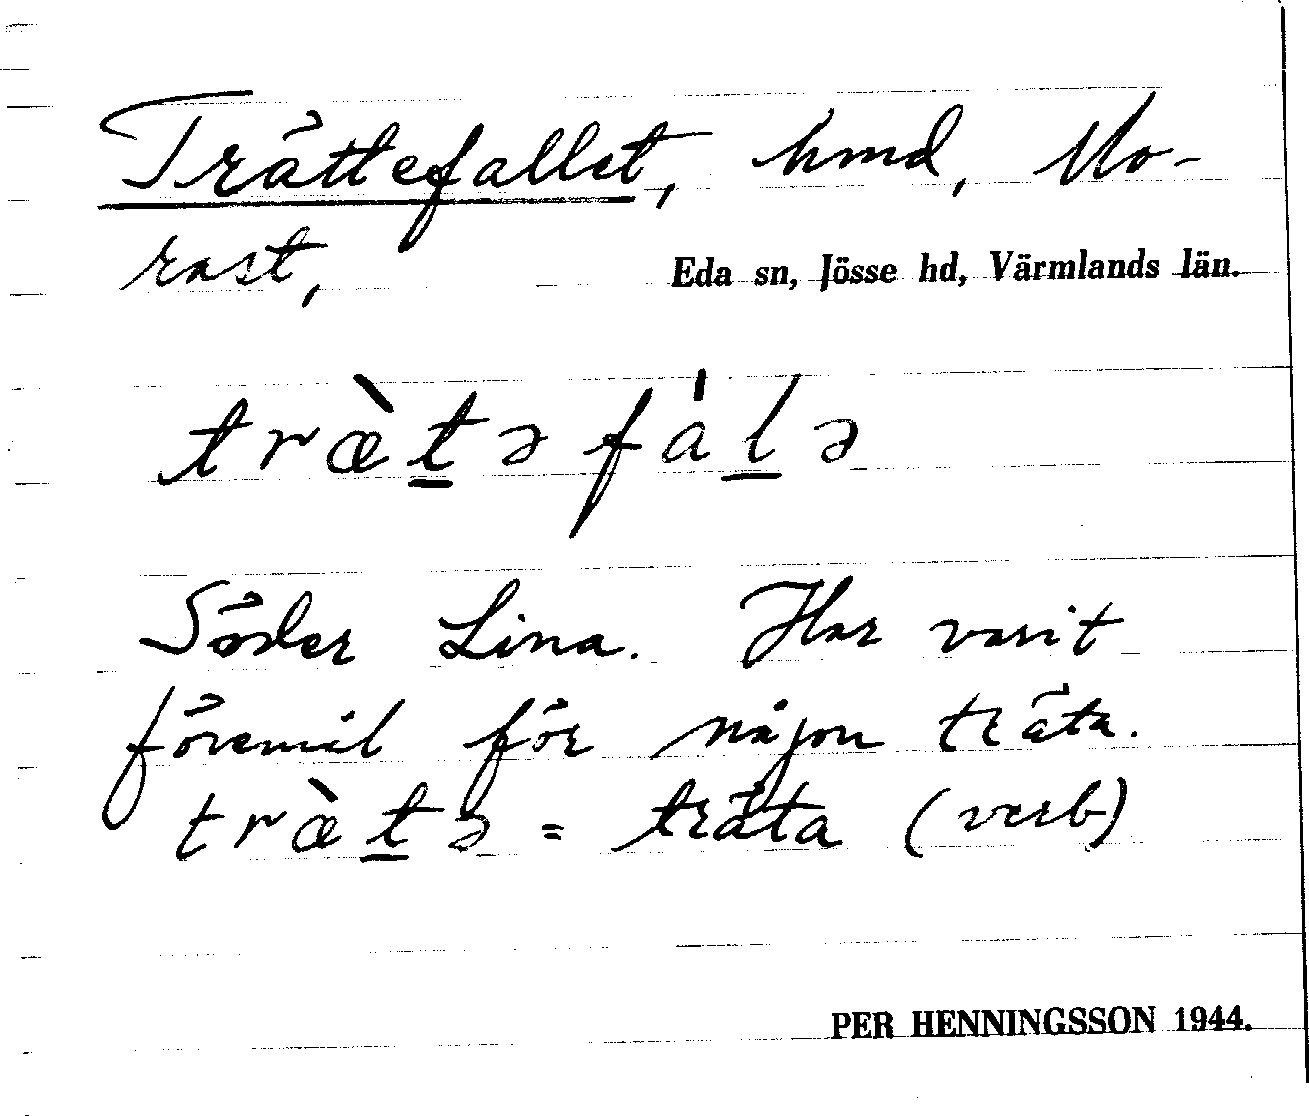 Trättefallet, hmd, Mo-
rast,
Eda sn, Jösse hd, Värmlands län.
træ̀t̲əfál̲ə
Söder Lina. Har varit
föremål för någon träta.
træ̀t̲ə = träta (verb)
PER HENNINGSSON 1944.